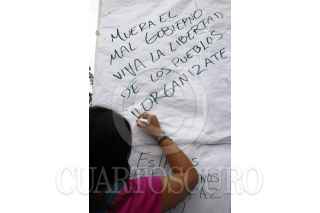 MUERA EL
MAL GOBIERNO
VIVA LA LIBERTAD
DE LOS PUEBLOS
¡¡ORGANIZATE
CUARTOSCURO